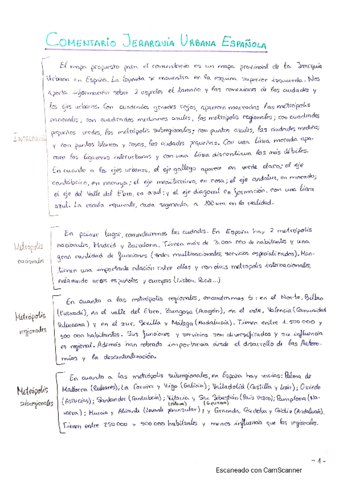 COMENTARIO JERARQUÍA URBANA ESPAÑOLA
El mapa propuesto para el comentario es un mapa provincial de la Jerarquía
Urbana en España. La leyenda se encuentra en la esquina superior izquierda. Nos
aporta información sobre 2 aspectos: el tamaño y las conexiones de las ciudades y
los ejes urbanos. Con cuadrados grandes rojos, aparecen marcadas las metrópolis
nacionales; con cuadrados medianos azules, las metrópolis regionales; con cuadrados
pequeños verdes, las metrópolis subregionales; con puntos azules, las ciudades medias;
y con puntos blancos y rosas, las ciudades pequeñas. Con una línea morada apare-
cen las ligazones interurbanas y con una línea discontinua las más débiles.
En cuanto a los ejes urbanos, el eje gallego aparece en verde claro; el eje
cantábrico, en naranja; el eje mediterráneo, en rosa; el eje andaluz, en morado;
el eje del Valle del Ebro, en azul; y el eje diagonal en formación, con una línea
azul. La escala 100 km en la realidad.
Metrópolis
nacionales
En primer lugar, comentaremos las ciudades. En España hay 2 metrópolis
nacionales, Madrid y Barcelona. Tienen más de 3.000.000 de habitantes y una
gran cantidad de funciones (sedes multinacionales, servicios especializados). Man-
tienen una importante relación entre ellas y con otras metrópolis internacionales,
y europeas (Lisboa, París...)
Metrópolis
regionales
En cuanto a las metrópolis regionales, encontramos 5: en el Norte, Bilbao
(Euskadi), en el valle del Ebro, Zaragoza (Aragón), en el este, Valencia (Comunidad
Valenciana) y en el sur, Sevilla y Málaga (Andalucía). Tienen entre 1.500.000 y
500.000 habitantes. Sus funciones y servicios son diversificados y su influencia
es regional. Además han cobrado importancia desde el desarrollo de las Autono-
mías y la descentralización.
Metrópolis
subregionales
En cuanto a las metrópolis subregionales, en España hay varias: Palma de
Mallorca (Baleares); La Coruña y Vigo (Galicia); Valladolid (Castilla y León); Oviedo
(Asturias); Santander (Cantabria); Vitoria y San Sebastián (País Vasco); Pamplona (Na-
varra); Murcia y Alicante (Levante peninsular) y Granada, Córdoba y Cádiz (Andalucía).
Tienen entre 250.000 y 500.000 habitantes y menos influencia que las regionales.
- 1 -
Escaneado con CamScanner